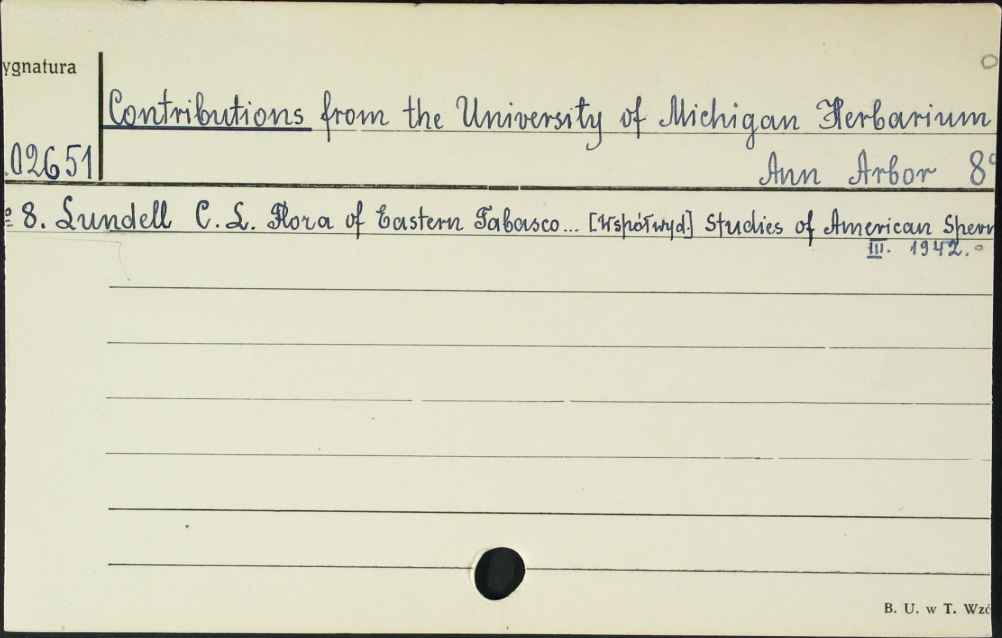 ygnatura
Contributions from the University of Michigan Herbarium
02651
Ann Arbor 8°
№ 8. Lundell C. L. Flora of Eastern Tabasco... [Współwyd.] Studies of American Sperm
III. 1942.
B. U. w T. Wzó